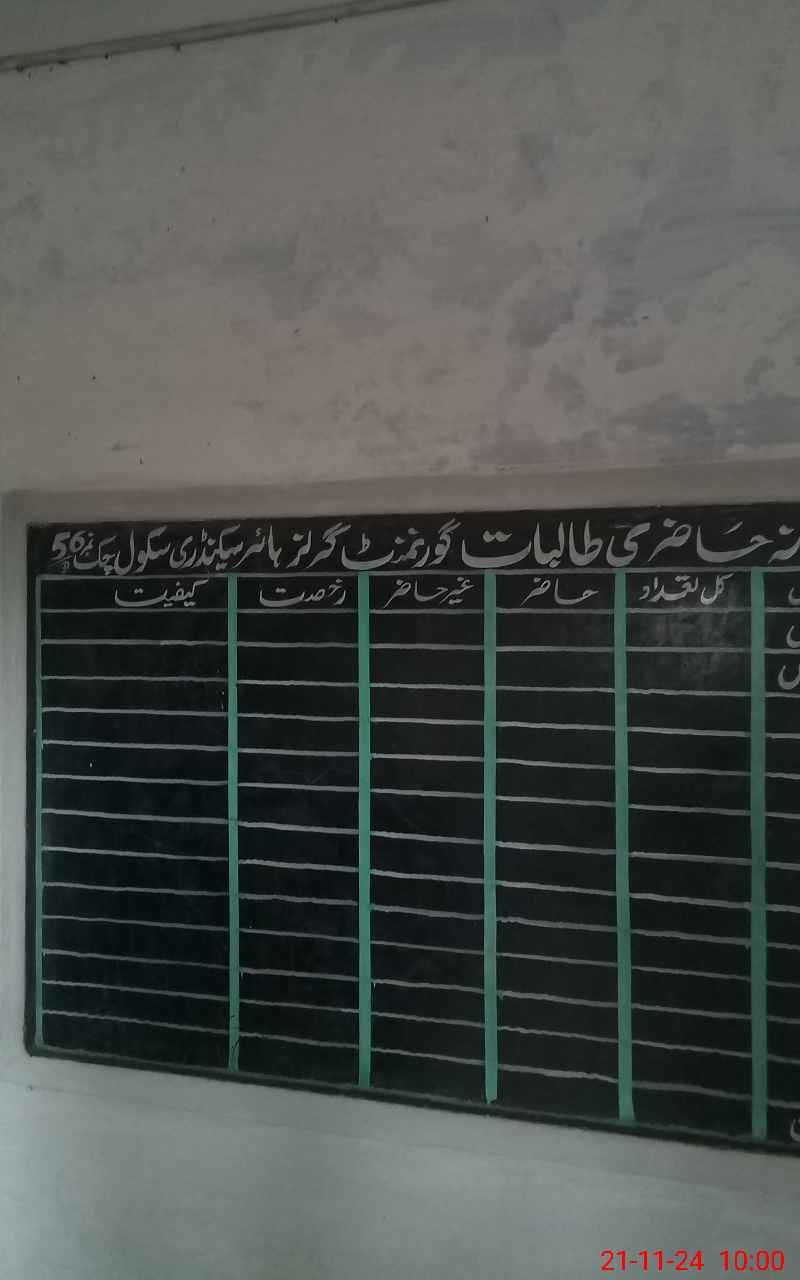 حاضری طالبات گورنمنٹ گرلز ہائر سیکنڈری سکول چک نمبر 56
کل تعداد حاضر غیر حاضر رخصت کیفیت
21-11-24 10:00